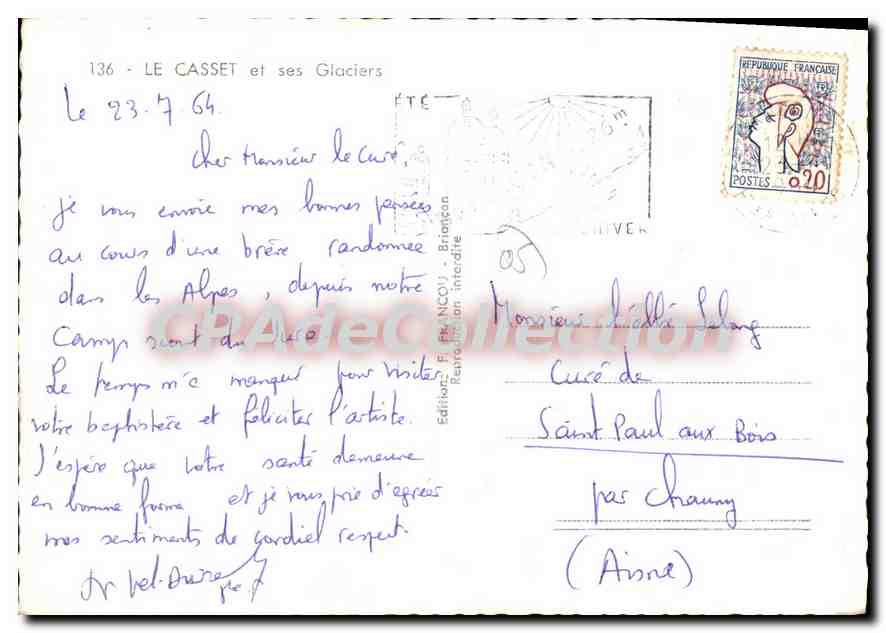 136 - LE CASSET et ses Glaciers
Le 23.7.64.
Cher Monsieur le Curé,
Je vous envoie mes bonnes pensées
au cours d'une brève randonnée
dans les Alpes, depuis notre
Camp scout du
Le temps m'a manqué pour visiter
votre baptistère et féliciter l'artiste.
J'espère que votre santé demeure
en bonne forme et je vous prie d'agréer
mes sentiments de cordial respect.
Editions F. FRANCOU - Briançon
Reproduction interdite
ÉTÉ
HIVER
REPUBLIQUE FRANÇAISE
POSTES 0.20
05
Monsieur l'abbé Lelong
Curé de
Saint Paul aux Bois
par Chauny
(Aisne)
CPAdeCollection